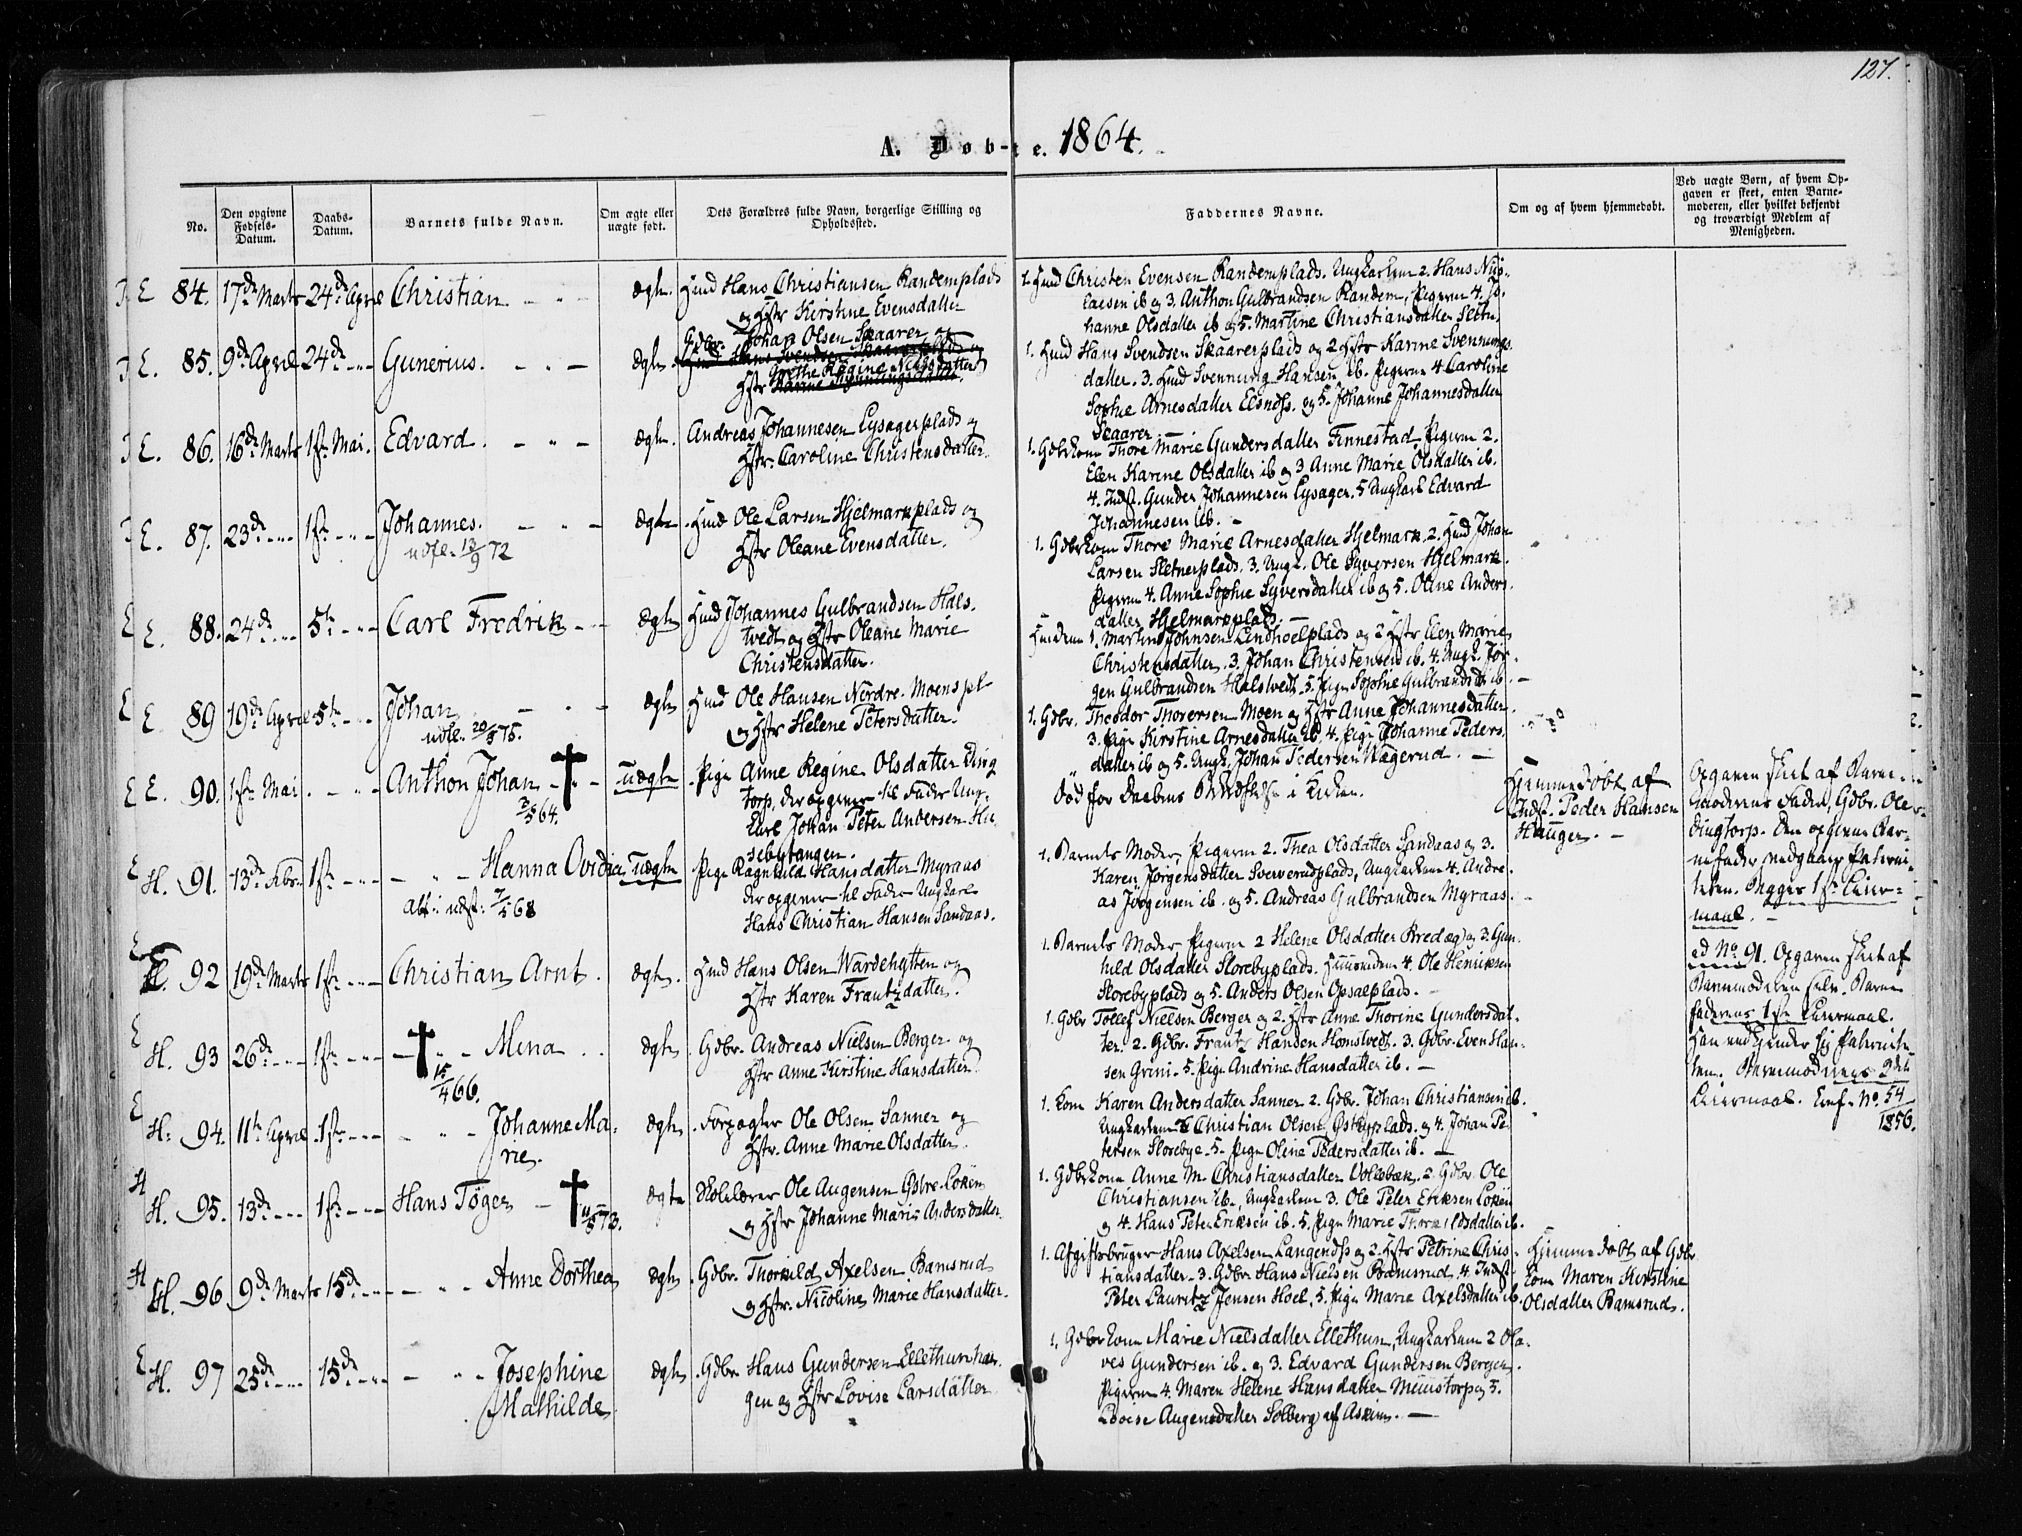 127.
A. Døbte. 1864.
No.
Den opgivne Fødsels-Datum.
Daabs-Datum.
Barnets fulde Navn.
Om ægte eller uægte født.
Dets Forældres fulde Navn, borgerlige Stilling og Opholdssted.
Faddernes Navne.
Om og af hvem hjemmedøbt.
Ved uægte Børn, af hvem Opgaven er skeet, enten Barnemoderen, eller hvilket bekjendt og troværdigt Medlem af Menigheden.
E 84. 17de Marts 24de April Christian ægte. Huusmd Hans Christiansen Randemplads
og Hstr Kirstine Evensdatter
1. Huusmd Christen Evensen Randemplads. Ungkarlene 2. Hans Nico-
laesen ib og 3. Anthon Gulbrandsen Randem, Pigerne 4. Jo-
hanne Olsdatter ib og 5. Martine Christiansdatter Sletn.
E. 85. 9de April 24de Gunerius. ægte. Gdbr. Johan Olsen Skaarer og
Grethe Regine Nielsdatter
1. Husmd Hans Svendsen Skaarerplads og 2 Hstr Karine Svennungs-
datter. 3. Husmd Svennung Hansen ib. Pigerne 4 Caroline
Sophie Arnesdatter og 5. Johanne Johannesdatter
Skaarer.
E. 86. 16de Marts 1ste Mai. Edvard. ægte. Andreas Johannesen Lysagerplads og
Hstr. Caroline Christensdatter.
1. Gdbrkone Thore Marie Gundersdatter Finnestad, Pigerne 2.
Elen Karine Olsdatter ib og 3 Anne Marie Olsdatter ib.
4. Indst. Gunder Johannesen Lysager. 5 Ungkarl Edvard
Johannesen ib. -
E. 87. 23de 1ste Johannes. ægte Husmd Ole Larsen Hjelmarkplads og
udfl. 13/9 72
Hstr Oleane Evensdatter.
1. Gdbrkone Thore Marie Arnesdatter Hjelmark. 2. Husmd Johan
Larsen Sletnerplads. 3. Ungk. Ole Syversen Hjelmark.
Pigerne 4. Anne Sophie Syversdatter ib og 5. Oline Anders-
datter Hjelmarkplads. -
E. 88. 24de 5te Carl Fredrik ægte Husmd Johannes Gulbrandsen Hals-
tvedt og Hstr Oleane Marie
Christensdatter.
1. Martin Johnsen Lindhoelplads og 2 Hstr Elen Marie
Christensdatter. 3. Johan Christensen ib. 4. Ungk. Jør-
gen Gulbrandsen Halstvedt. 5. Pige Sophie Gulbrandsdt ib. -
E 89 19de April 5te Johan ægte Husmd Ole Hansen Nordre-Moenspl
udfl. 20/5 75.
og Hstr Helene Petersdatter.
1. Gdbr. Theodor Thorersen Moen og Hstr Anne Johannesdatter.
3. Pige Kirstine Arnesdatter ib. 4. Pige Johanne Peders-
datter ib og 5. Ungk. Johan Pedersen Hægerud. -
E. 90. 1ste Mai Anthon Johan † uægte Pige Anne Regine Olsdatter Ding-
torp, der opgiver til Fader Ung-
karl Johan Peter Andersen Hu-
sebytangen.
2/5 64.
Død før Daabens Bekræftelse i Kirken.
Hjemmedøbt af
Indst. Peder Hansen
Hauger. -
Opgaven skeet af Barne-
moderens Fader, Gdbr. Ole
Dingtorp. Den opgivne Bar-
nefader nedgaaer Paterni-
teten. Begges 1ste Leier-
maal. -
H. 91. 13de Febr. 1ste Hanna Ovidia uægte Pige Ragnhild Hansdatter Myraas
der opgiver til Fader Ungkarl
Hans Christian Hansen Sandaas.
att: udst: 7/5 68
1. Barnets Moder, Pigerne 2. Thea Olsdatter Sandaas og 3.
Karen Jørgensdatter Sververudplads, Ungkarlene 4. Andre-
as Jørgensen ib. og 5. Andreas Gulbrandsen Myraas.
ad No 91. Opgaven skeet af
Barnemoderen selv. Barne-
faderens 1ste Leiermaal.
Han vedkjender sig Paternite-
ten. Barnemoderens 2det
Leiermaal. Conf. No 54/1856.
H. 92 19de Marts 1ste Christian Arnt. ægte. Husmd Hans Olsen Wardehytten og
Hstr Karen Frantzdatter.
1. Barnets Moder Pigerne 2 Helene Olsdatter Bredæg og 3. Gun-
hild Olsdatter Storebyplads. Huusmdene 4. Ole Henriksen
Storebyplads og 5. Anders Olsen Opsalplads. -
H. 93 26de 1ste † Mena ægte Gdbr. Andreas Nielsen Berger og
Hstr Anne Kirstine Hansdatter.
15/4 66.
1. Gdbr Tollef Nielsen Berger og 2. Hstr Anne Thorine Gundersdat-
ter. 2. Gdbr. Frantz Hansen Homstvedt. 3. Gdbr. Even Han-
sen Grini. 5. Pige Andrine Hansdatter ib. -
H. 94. 11te April 1ste Johanne Ma-
rie.
ægte Forpagter Ole Olsen Sanner og
Hstr. Anne Marie Olsdatter.
1. Kone Karen Andersdatter Sanner 2. Gdbr. Johan Christiansen ib.
Ungkarlene 3 Christian Olsen Østbyplads. og 4. Johan Pe-
tersen Storebye. 5. Pige Oline Pedersdatter ib. -
H. 95. 13de 1ste Hans Tøger † 11/5 73. ægte Skolelærer Ole Augensen Østre-Løken
og Hstr Johanne Marie Andersdatter.
1. Gdbrkone Anne M. Christiansdatter Vollebæk. 2. Gdbr. Ole
Christiansen ib., Ungkarlene 3. Ole Peter Eriksen Løken
og 4. Hans Peter Eriksen ib. 5. Pige Marie Thorkildsdatter ib.
H. 96 9de Marts 15de Anne Dorthea ægte Gdbr. Thorkild Axelsen Bamsrud
og Hstr. Nicoline Marie Hansdatter.
1. Afgiftsbruger Hans Axelsen Langenæss og 2. Hstr Petrine Chris-
tiansdatter. 3. Gdbr. Hans Nielsen Bamsrud, 4. Indst.
Peter Lauritz Jensen Hoel. 5. Pige Marie Axelsdatter ib.
Hjemmedøbt af Gdbr.
kone Maren Kirstine
Olsdatter Bamsrud.
H. 97 25de 15de Josephine
Mathilde
ægte Gdbr. Hans Gundersen Ellethunhau-
gen og Hstr Lovise Larsdatter
1. Gdbrkone Marie Nielsdatter Ellethun, Ungkarlene 2 Ola-
ves Gundersen ib. og 3. Edvard Gundersen Berger.
Pigerne 4. Maren Helene Hansdatter og 5.
Lovise Augensdatter Solberg af Askim. -